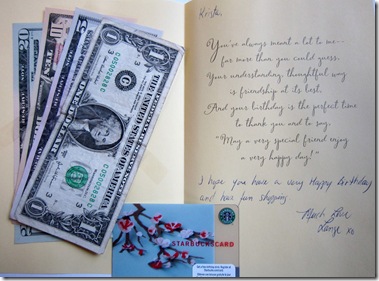 20
TEN
5
1
1
C05002828C
THE UNITED STATES OF AMERICA
C05002828C
1
STARBUCKSCARD
You've always meant a lot to me—
far more than you could guess.
Your understanding, thoughtful way
is friendship at its best.
And your birthday is the perfect time
to thank you and to say,
"May a very special friend enjoy
a very happy day!"
I hope you have a very Happy Birthday
and have fun shopping
Much Love
xo